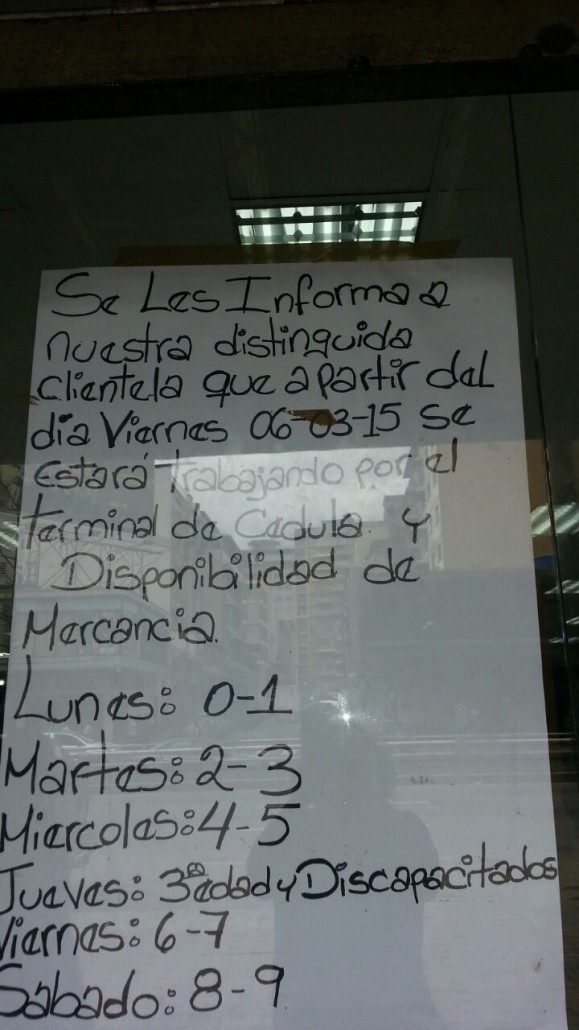 Se Les Informa a
nuestra distinguida
clientela que apartir del
día Viernes 06-03-15 se
Estará Trabajando por el
terminal de Cedula. y
Disponibilidad de
Mercancia.
Lunes: 0-1
Martes: 2-3
Miercoles: 4-5
Jueves: 3ª edad y Discapacitados
Viernes: 6-7
Sabado: 8-9